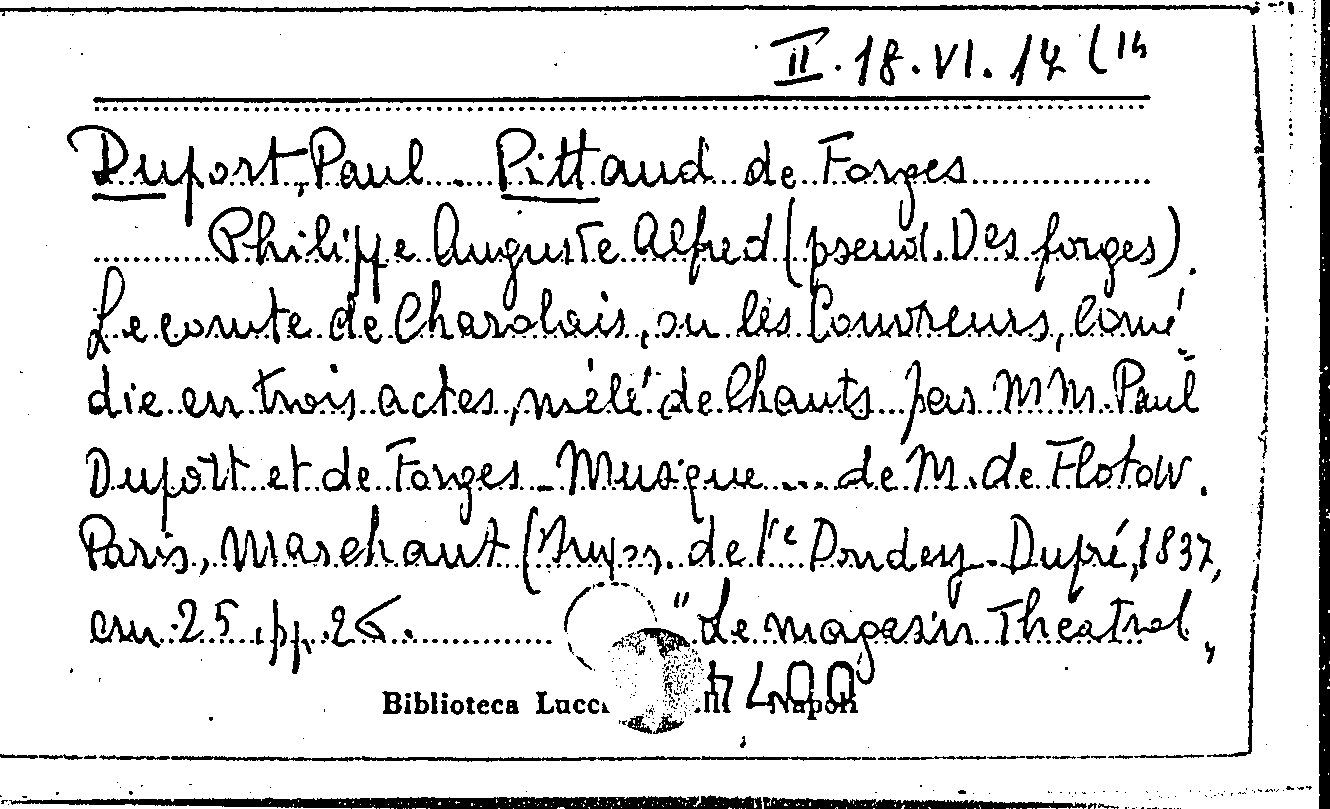 II. 18. VI. 14 (14
Dufort, Paul - Pittaud de Forges
Philippe Auguste Alfred (pseud. Des forges).
Le comte de Charolais, ou les Couvreurs, comé
die en trois actes, mélé de Chants par M M. Paul
Dufort et de Forges - Musique ... de M. de Flotow.
Paris, Marchant (Impr. de Ve Dondey-Dupré, 1837,
cm. 25, pp. 26. "Le magasin Theatral„
Biblioteca Lucc Napoli